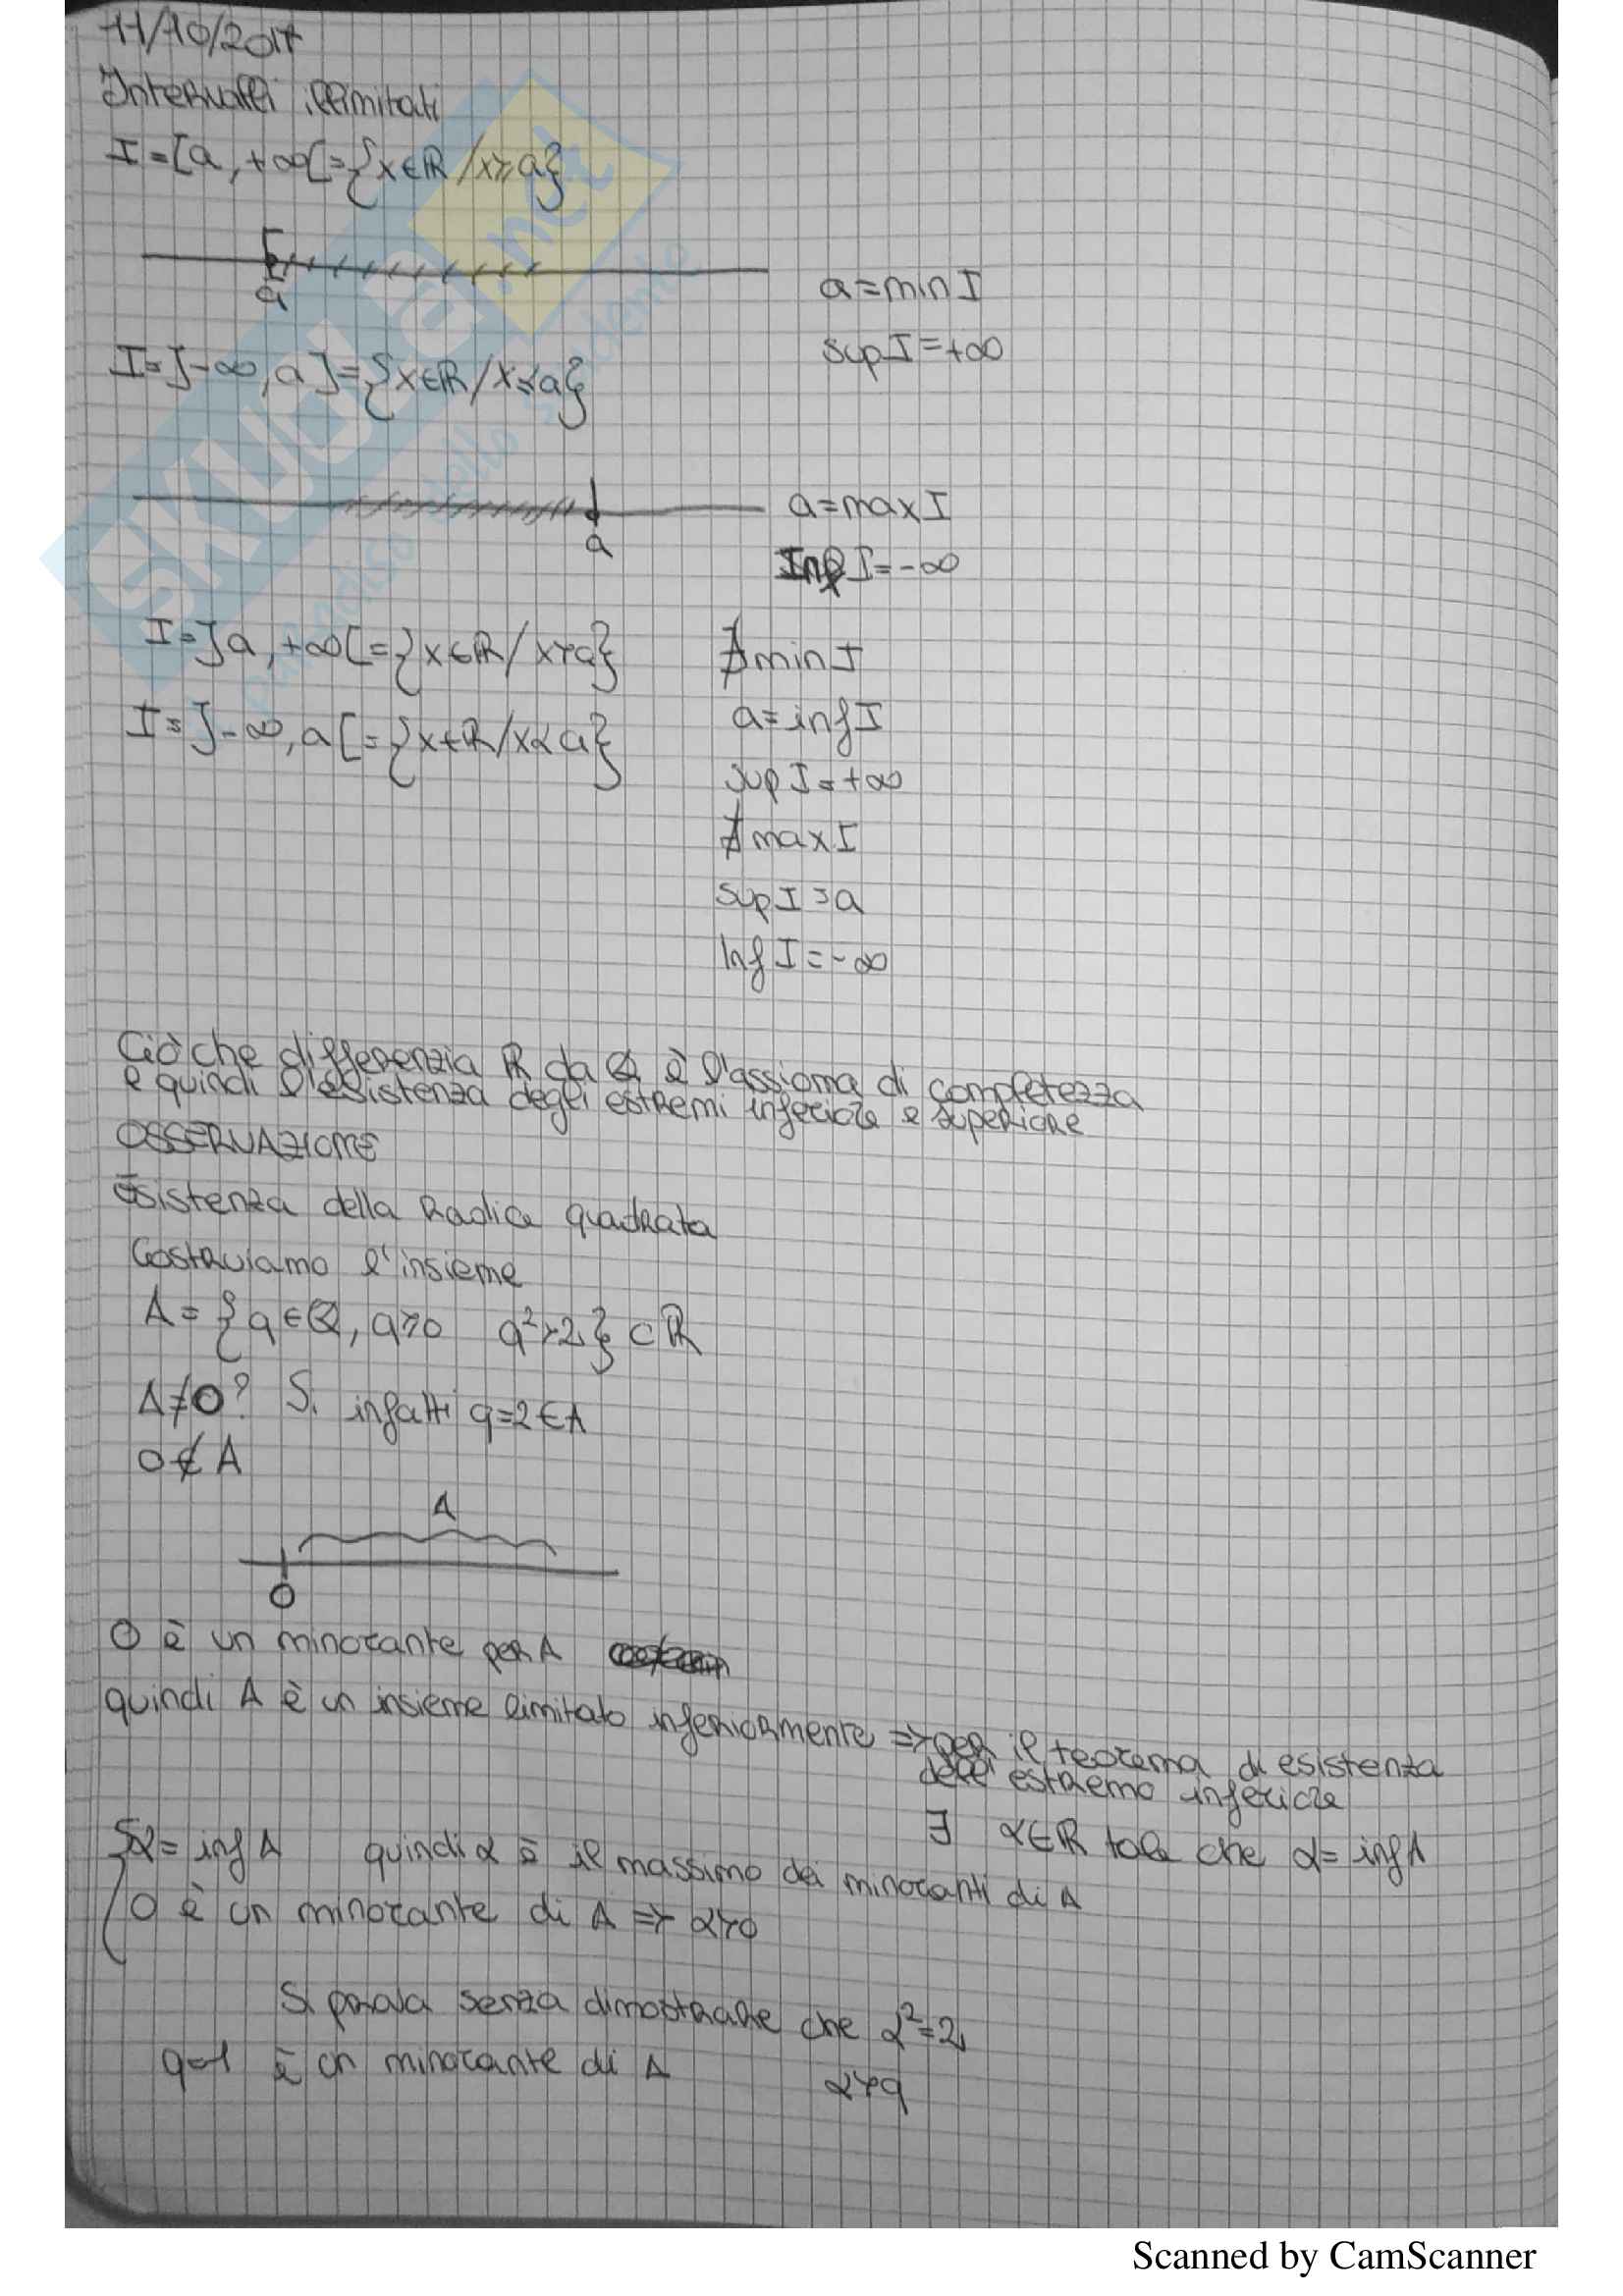 11/10/2017
Intervalli illimitati
I = [a, +∞[ = {x∈ℝ / x≥a}
a
a = min I
sup I = +∞
I = ]-∞, a] = {x∈ℝ / x≤a}
a
a = max I
Inf I = -∞
I = ]a, +∞[ = {x∈ℝ / x>a}
∄ min I
a = inf I
sup I = +∞
I = ]-∞, a[ = {x∈ℝ / x<a}
∄ max I
sup I = a
Inf I = -∞
Ciò che differenzia ℝ da ℚ è l'assioma di completezza
e quindi l'esistenza degli estremi inferiore e superiore
OSSERVAZIONE
Esistenza della Radice quadrata
Costruiamo l'insieme
A = {q∈ℚ, q>0 q²>2} ⊂ ℝ
A≠0? Si infatti q=2∈A
0∉A
A
0
0 è un minorante per A
quindi A è un insieme limitato inferiormente => per il teorema di esistenza
dell'estremo inferiore
∃ α∈ℝ tale che α = inf A
{α = inf A quindi α è il massimo dei minoranti di A
0 è un minorante di A => α>0
Si prova senza dimostrare che α²=2
q=1 è un minorante di A α>q
SKUOLA.net
paradiso dello studente
Scanned by CamScanner